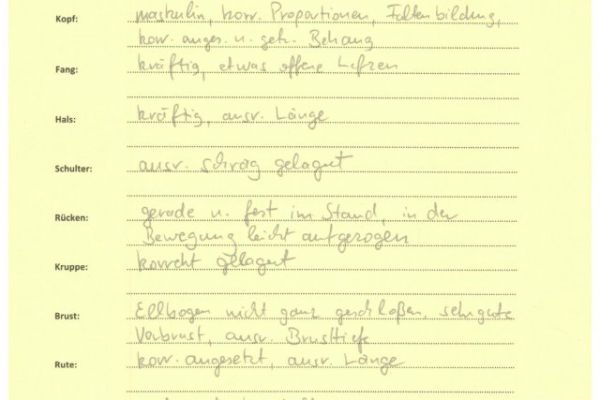 Kopf: maskulin, korr. Proportionen, Faltenbildung,
korr. anges. u. getr. Behang
Fang: kräftig, etwas offene Lefzen
Hals: kräftig, ausr. Länge
Schulter: ausr. schräg gelagert
Rücken: gerade u. fest im Stand, in der
Bewegung leicht aufgezogen
Kruppe: korrekt gelagert
Brust: Ellbogen nicht ganz geschloßen, sehr gute
Vorbrust, ausr. Brusttiefe
Rute: korr. angesetzt, ausr. Länge